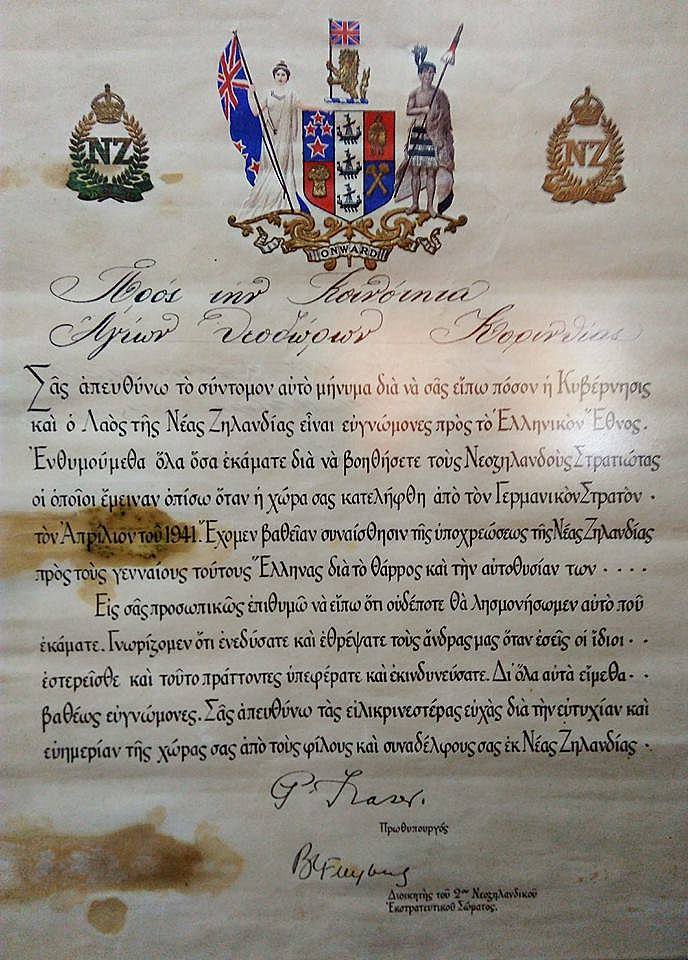 NZ
NZ
ONWARD
Πρός τήν Κοινότητα
Ἁγίων Θεοδώρων Κορινθίας
Σᾶς ἀπευθύνω τὸ σύντομον αὐτὸ μήνυμα διὰ νὰ σᾶς εἴπω πόσον ἡ Κυβέρνησις
καὶ ὁ Λαὸς τῆς Νέας Ζηλανδίας εἶναι εὐγνώμονες πρὸς τὸ Ἑλληνικὸν Ἔθνος.
Ἐνθυμούμεθα ὅλα ὅσα ἐκάματε διὰ νὰ βοηθήσετε τοὺς Νεοζηλανδοὺς Στρατιώτας
οἱ ὁποῖοι ἔμειναν ὀπίσω ὅταν ἡ χώρα σας κατελήφθη ἀπὸ τὸν Γερμανικὸν Στρατὸν .
τὸν Ἀπρίλιον τοῦ 1941. Ἔχομεν βαθεῖαν συναίσθησιν τῆς ὑποχρεώσεως τῆς Νέας Ζηλανδίας
πρὸς τοὺς γενναίους τούτους Ἕλληνας διὰ τὸ θάρρος καὶ τὴν αὐτοθυσίαν των . . . .
Εἰς σᾶς προσωπικῶς ἐπιθυμῶ νὰ εἴπω ὅτι οὐδέποτε θὰ λησμονήσωμεν αὐτὸ ποῦ
ἐκάματε. Γνωρίζομεν ὅτι ἐνεδύσατε καὶ ἐθρέψατε τοὺς ἄνδρας μας ὅταν ἐσεῖς οἱ ἴδιοι . .
ἐστερεῖσθε καὶ τοῦτο πράττοντες ὑπεφέρατε καὶ ἐκινδυνεύσατε. Δι' ὅλα αὐτὰ εἴμεθα . .
βαθέως εὐγνώμονες. Σᾶς ἀπευθύνω τὰς εἰλικρινεστέρας εὐχὰς διὰ τὴν εὐτυχίαν καὶ
εὐημερίαν τῆς χώρας σας ἀπὸ τοὺς φίλους καὶ συναδέλφους σας ἐκ Νέας Ζηλανδίας .
P. Fraser.
Πρωθυπουργός
Διοικητὴς τοῦ 2ου Νεοζηλανδικοῦ
Ἐκστρατευτικοῦ Σώματος.